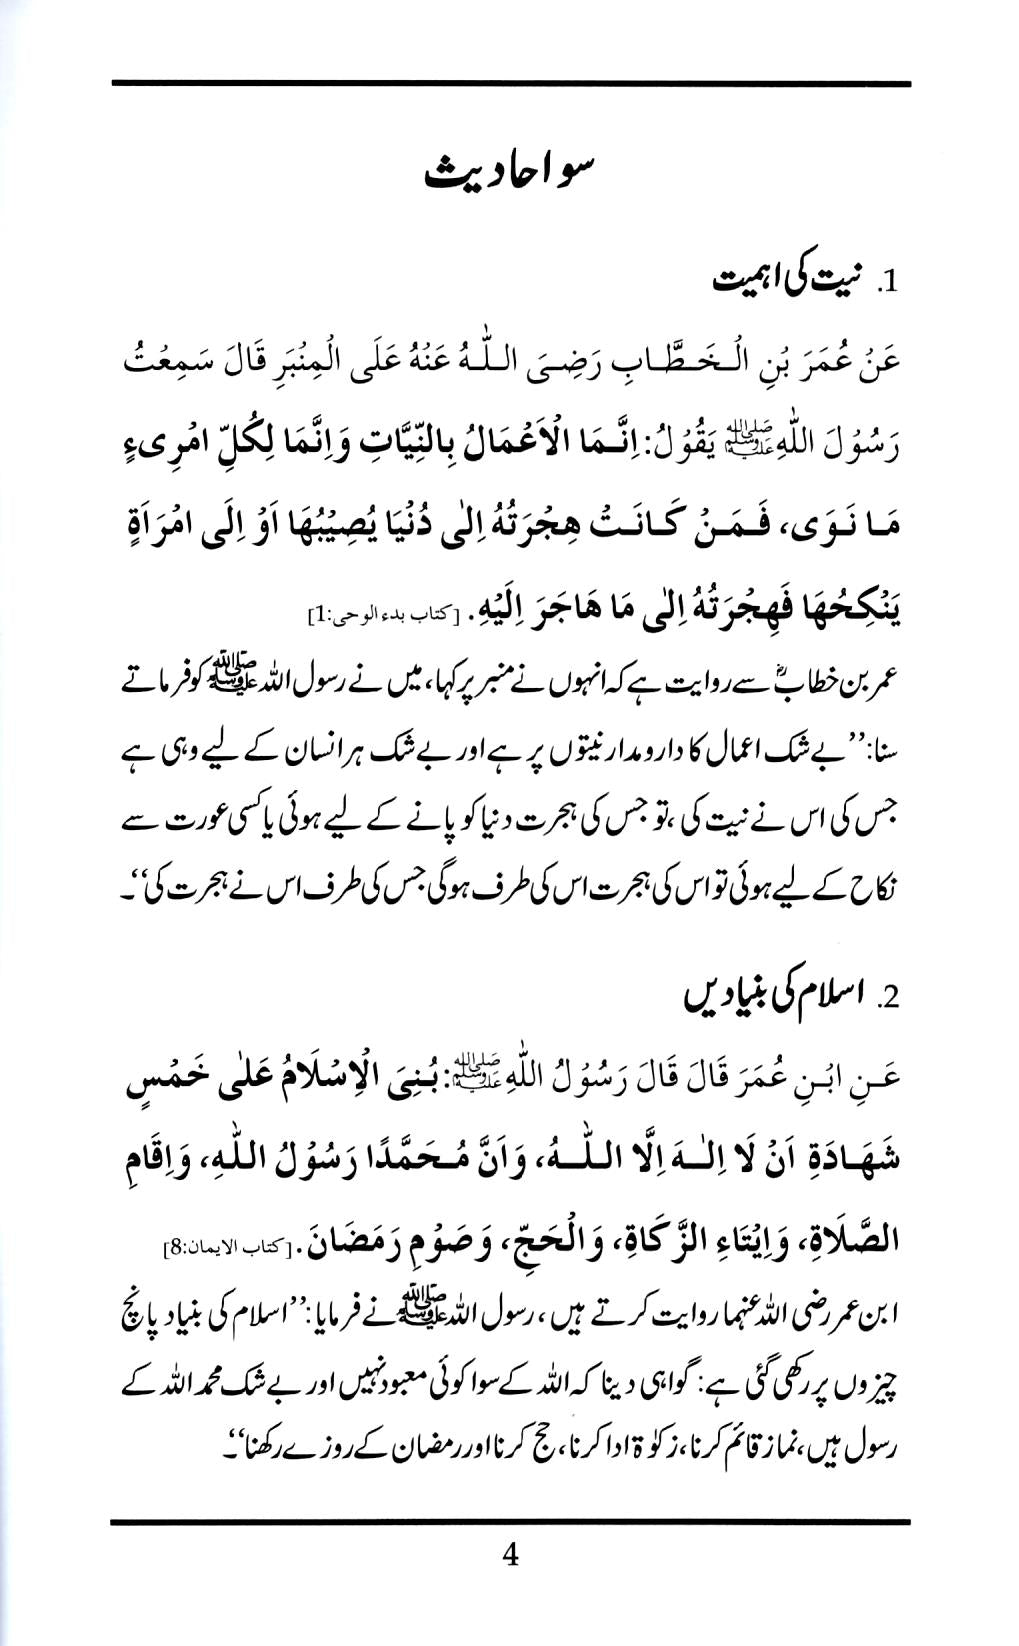 سو احادیث
1. نیت کی اہمیت
عَنْ عُمَرَ بْنِ الْخَطَّابِ رَضِيَ اللّٰهُ عَنْهُ عَلَى الْمِنْبَرِ قَالَ سَمِعْتُ
رَسُوْلَ اللّٰهِ ﷺ يَقُوْلُ: اِنَّمَا الْاَعْمَالُ بِالنِّيَّاتِ وَاِنَّمَا لِكُلِّ امْرِىءٍ
مَا نَوَى، فَمَنْ كَانَتْ هِجْرَتُهُ اِلٰى دُنْيَا يُصِيْبُهَا اَوْ اِلَى امْرَاَةٍ
يَنْكِحُهَا فَهِجْرَتُهُ اِلٰى مَا هَاجَرَ اِلَيْهِ. [کتاب بدء الوحی:1]
عمر بن خطابؓ سے روایت ہے کہ انہوں نے منبر پر کہا، میں نے رسول اللہ ﷺ کو فرماتے
سنا: ’’بے شک اعمال کا دارومدار نیتوں پر ہے اور بے شک ہر انسان کے لیے وہی ہے
جس کی اس نے نیت کی، تو جس کی ہجرت دنیا کو پانے کے لیے ہوئی یا کسی عورت سے
نکاح کے لیے ہوئی تو اس کی ہجرت اس کی طرف ہوگی جس کی طرف اس نے ہجرت کی‘‘۔
2. اسلام کی بنیادیں
عَنِ ابْنِ عُمَرَ قَالَ قَالَ رَسُوْلُ اللّٰهِ ﷺ: بُنِيَ الْاِسْلَامُ عَلٰى خَمْسٍ
شَهَادَةِ اَنْ لَا اِلٰهَ اِلَّا اللّٰهُ، وَاَنَّ مُحَمَّدًا رَسُوْلُ اللّٰهِ، وَاِقَامِ
الصَّلَاةِ، وَاِيْتَاءِ الزَّكَاةِ، وَالْحَجِّ، وَصَوْمِ رَمَضَانَ. [کتاب الایمان:8]
ابن عمر رضی اللہ عنہما روایت کرتے ہیں، رسول اللہ ﷺ نے فرمایا: ’’اسلام کی بنیاد پانچ
چیزوں پر رکھی گئی ہے: گواہی دینا کہ اللہ کے سوا کوئی معبود نہیں اور بے شک محمد اللہ کے
رسول ہیں، نماز قائم کرنا، زکوٰۃ ادا کرنا، حج کرنا اور رمضان کے روزے رکھنا‘‘۔
4